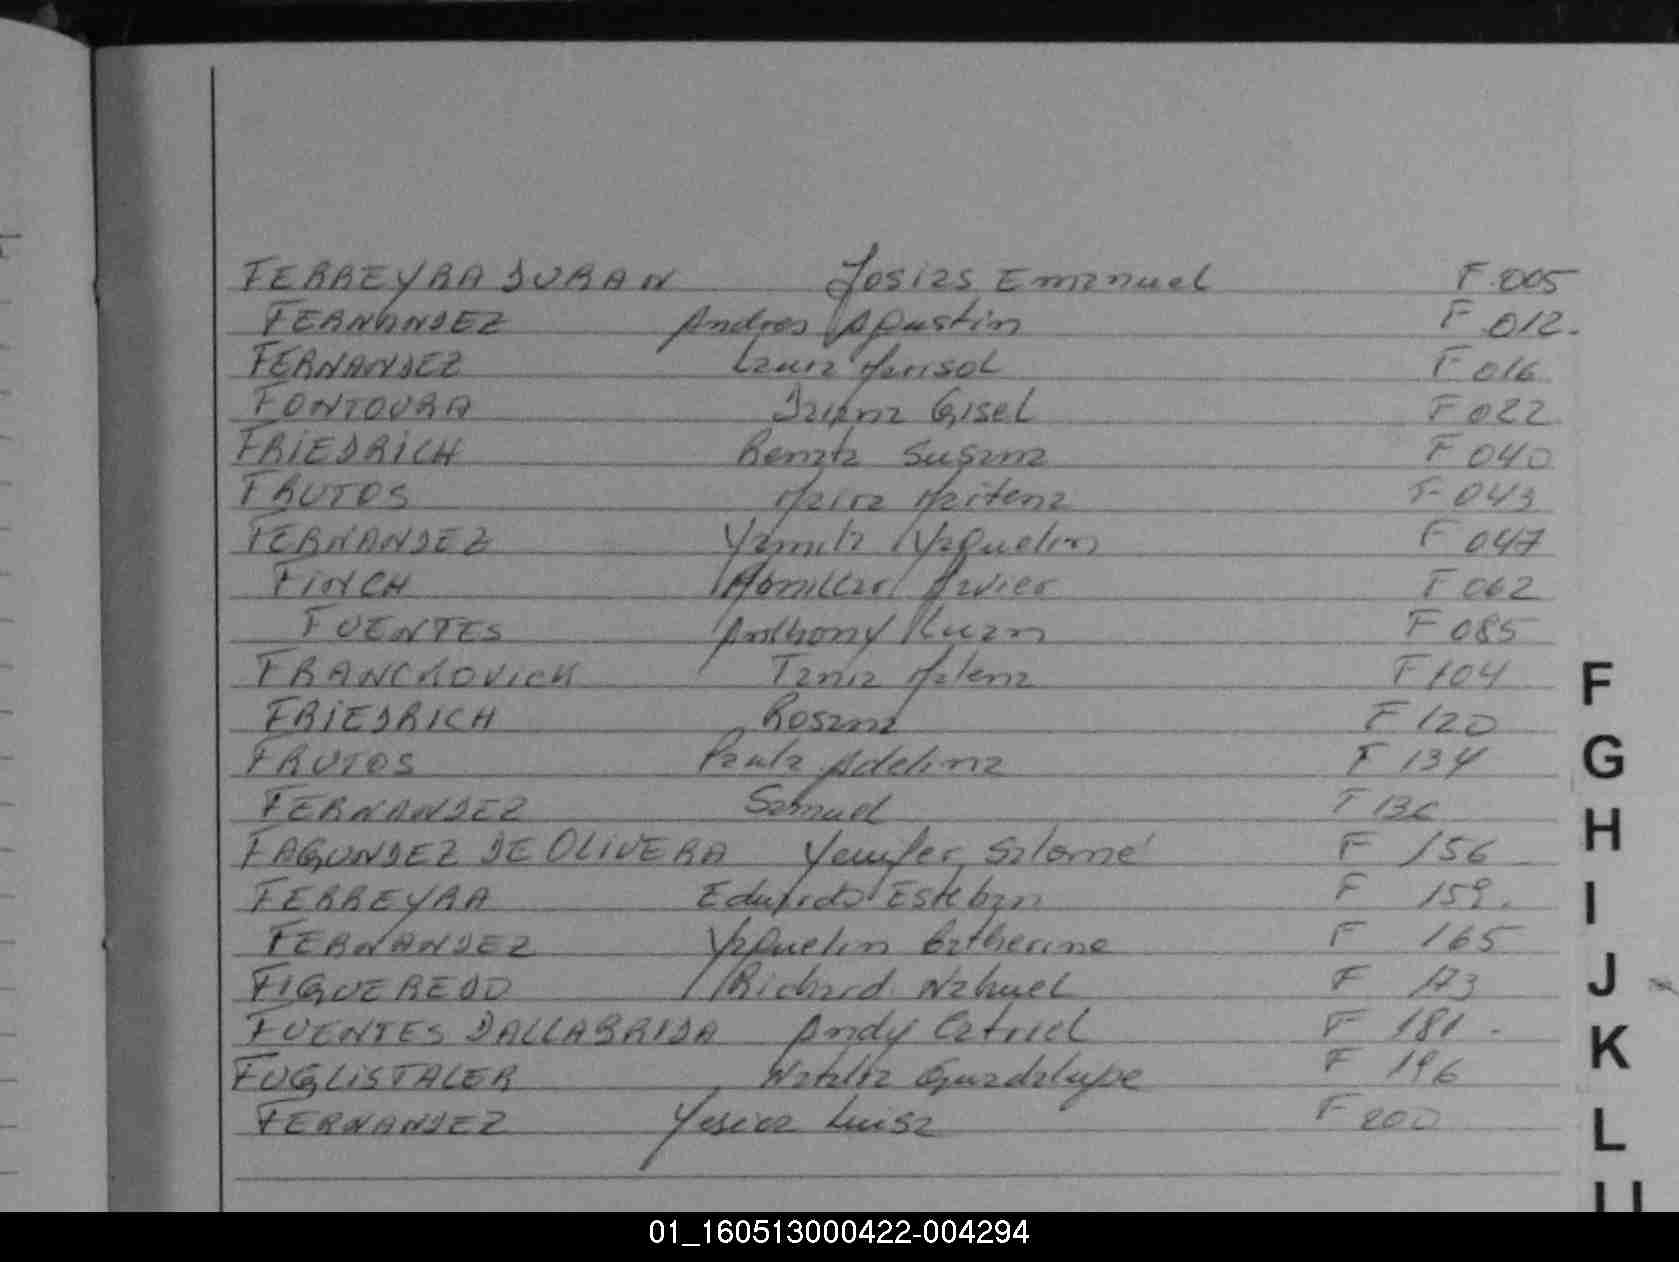 FERREYRA DURAN Josias Emanuel F.005
FERNANDEZ Andres Agustin F 012.
FERNANDEZ Laura Marisol F 016
FONTOURA Daiana Gisel F 022
FRIEDRICH Renata Susana F 040
FRUTOS Maira Maitena F 043
FERNANDEZ Yamila Yaquelin F 047
FINCH Hamilcar Javier F 062
FUENTES Anthony Kuan F 085
FRANCKOVICH Tania Malena F 104
FRIEDRICH Rosana F 120
FRUTOS Paula Adelina F 134
FERNANDEZ Samuel F 136
FAGUNDEZ DE OLIVERA Yenifer Salomé F 156
FERREYRA Eduardo Esteban F 159.
FERNANDEZ Yaquelin Catherine F 165
FIGUEREDO Richard Nahuel F 173
FUENTES DALLABRIDA Andy Catriel F 181.
FUGLISTALER Natalia Guadalupe F 196
FERNANDEZ Yesica Luisa F 200
F
G
H
I
J
K
L
01_160513000422-004294